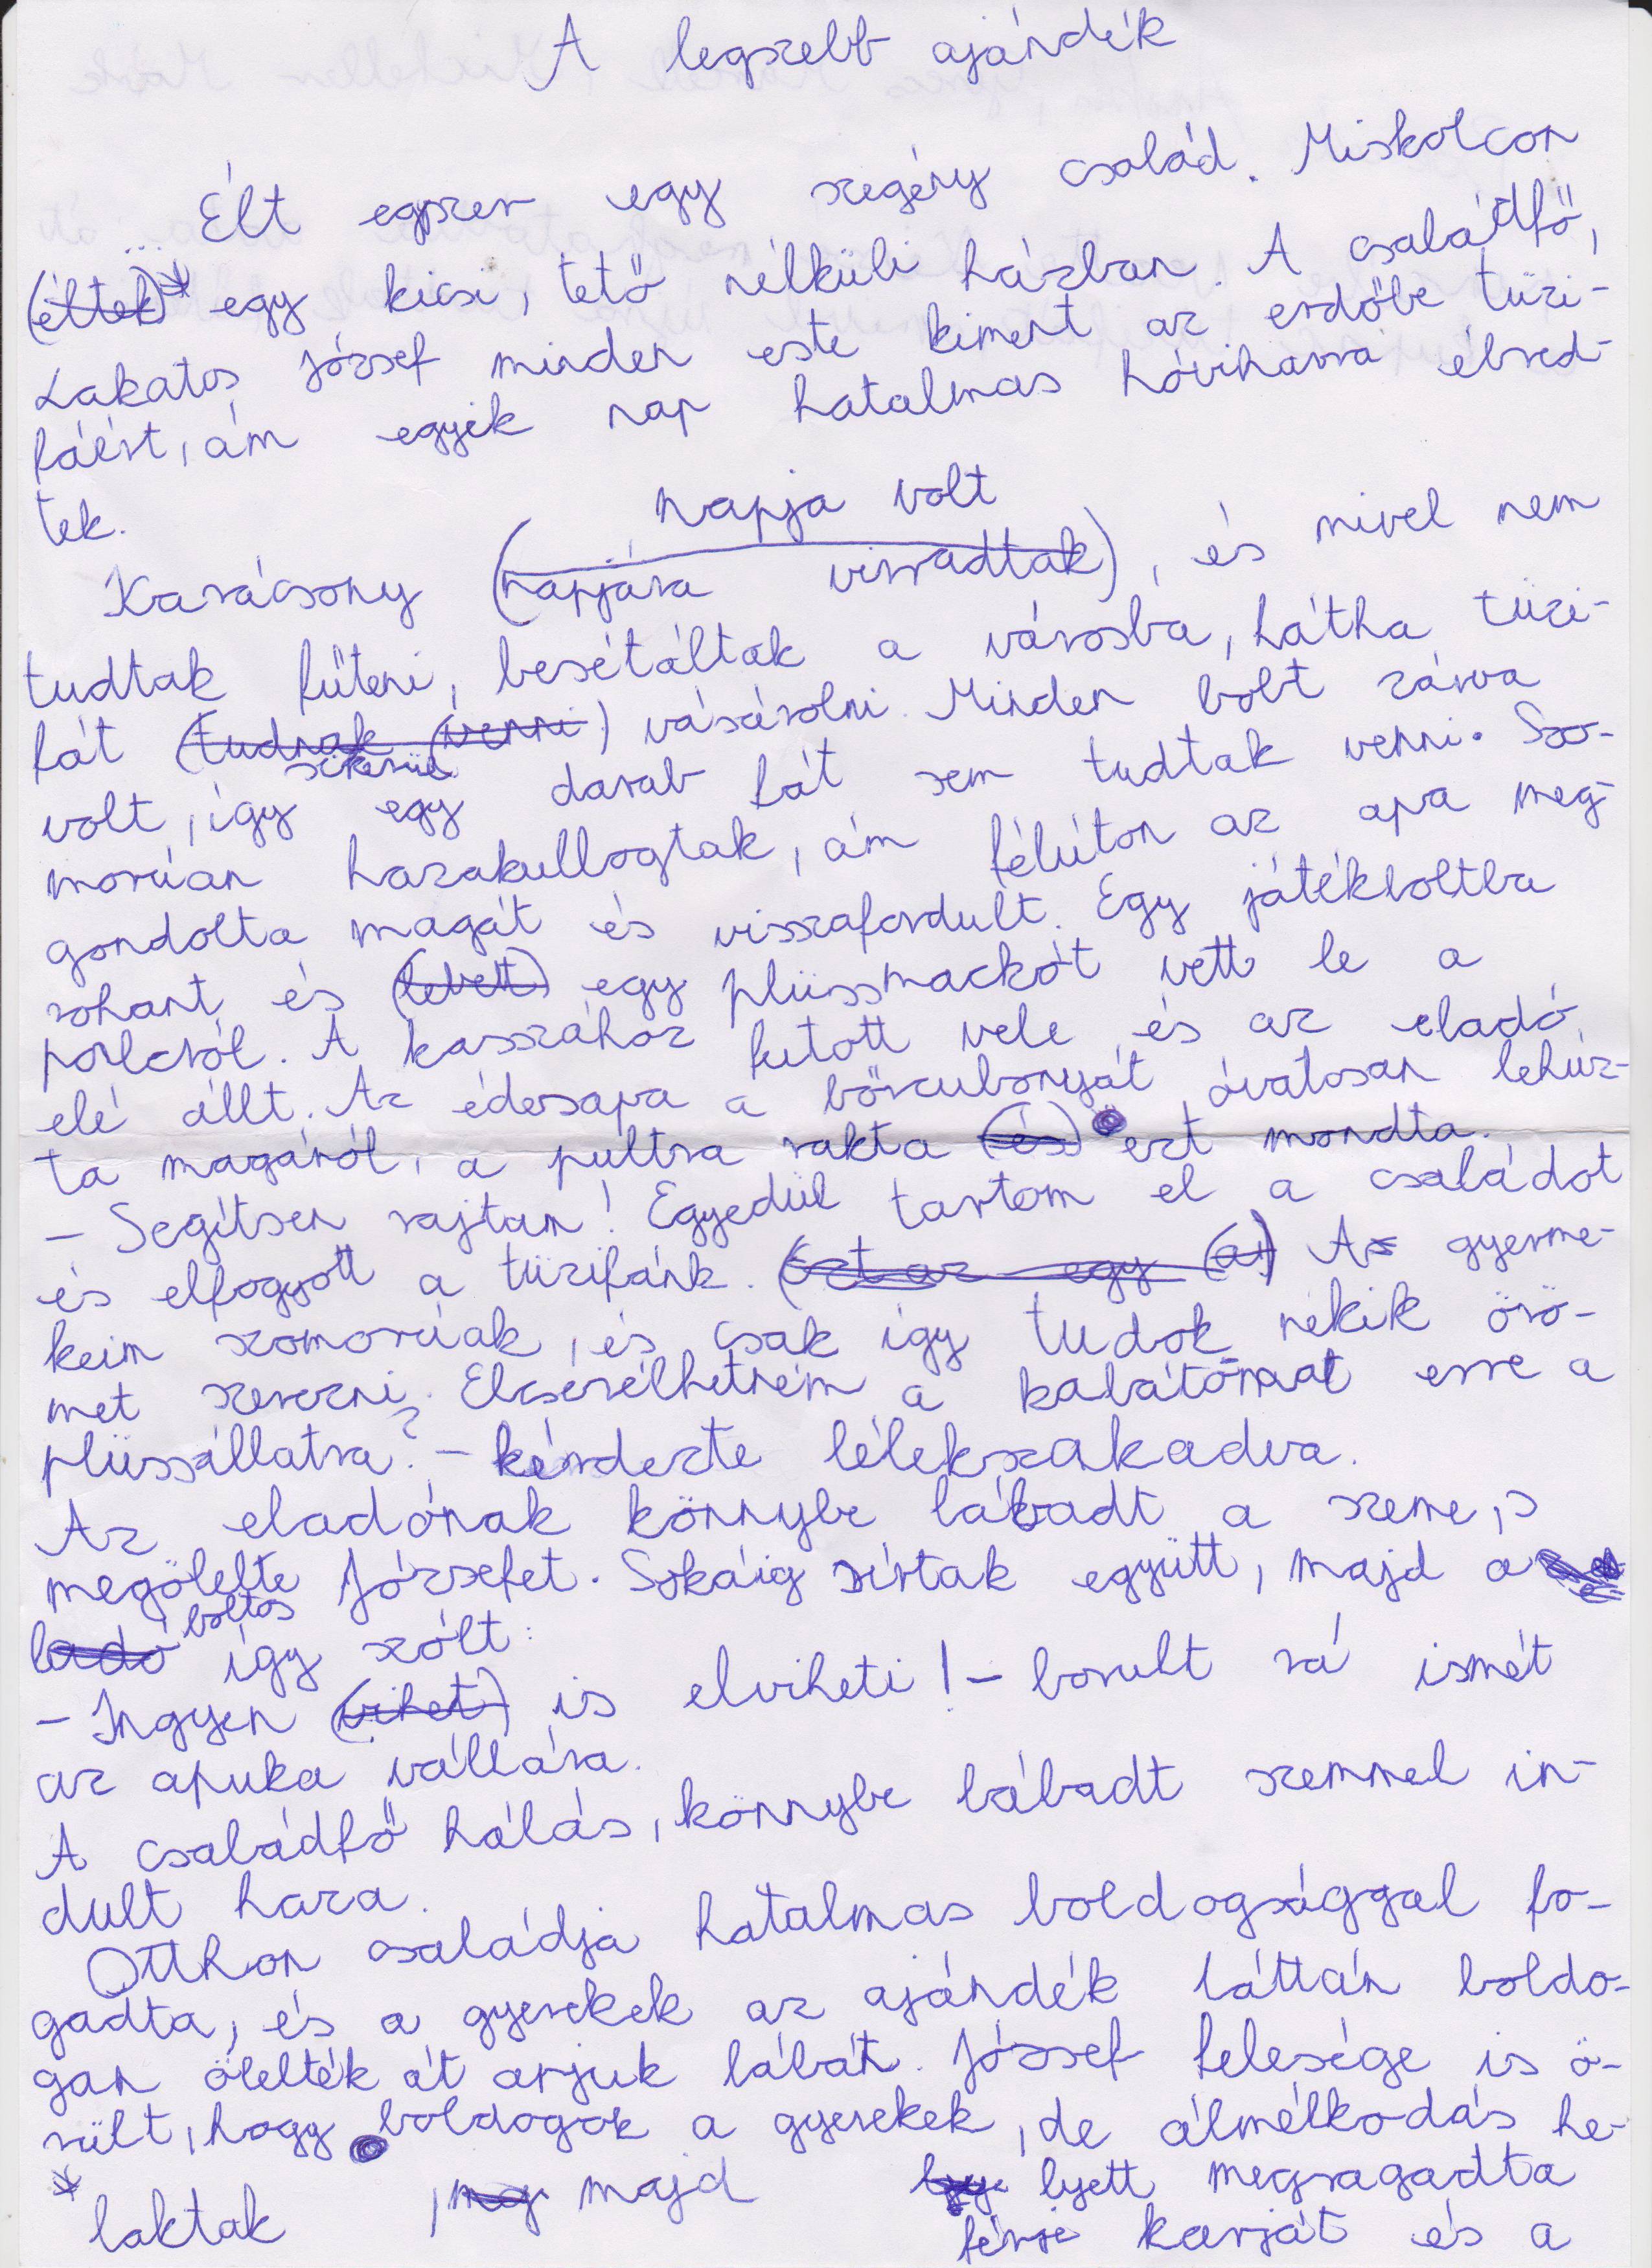 A legszebb ajándék
Élt egyszer egy szegény család. Miskolcon
(éltek)* egy kicsi, tető nélküli házban. A családfő,
Lakatos József minden este kiment az erdőbe tüzi-
fáért, ám egyik nap hatalmas hóviharra ébred-
tek.
napja volt
Karácsony (napjára virradtak), és mivel nem
tudtak fűteni, besétáltak a városba, hátha tüzi-
fát (tudnak (venni) vásárolni. Minden bolt zárva
sikerül
volt, így egy darab fát sem tudtak venni. Szo-
morúan hazakullogtak, ám félúton az apa meg-
gondolta magát és visszafordult. Egy játékboltba
rohant és (levett) egy plüssmackót vett le a
polcról. A kasszához futott vele és az eladó
elé állt. Az édesapa a bőrcubonyát óvatosan lehúz-
ta magáról, a pultra rakta (és) ezt mondta.
– Segítsen rajtam! Egyedül tartom el a családot
és elfogyott a tüzifánk. (Ezt az egy (a)) A gyerme-
keim szomorúak, és csak így tudok nékik örö-
met szerezni. Elcserélhetném a kabátomat erre a
plüssállatra? – kérdezte lélekszakadva.
Az eladónak könnybe lábadt a szeme, s
megölelte Józsefet. Sokáig sírtak együtt, majd a
boltos
ladó így szólt:
– Ingyen (viheti) is elviheti! – borult rá ismét
az apuka vállára.
A családfő hálás, könnybe lábadt szemmel in-
dult haza.
Otthon családja hatalmas boldogsággal fo-
gadta, és a gyerekek az ajándék láttán boldo-
gan ölelték át apjuk lábát. József felesége is ö-
rült, hogy boldogok a gyerekek, de álmélkodás he-
* laktak , meg majd lyett megragadta
férje karját és a